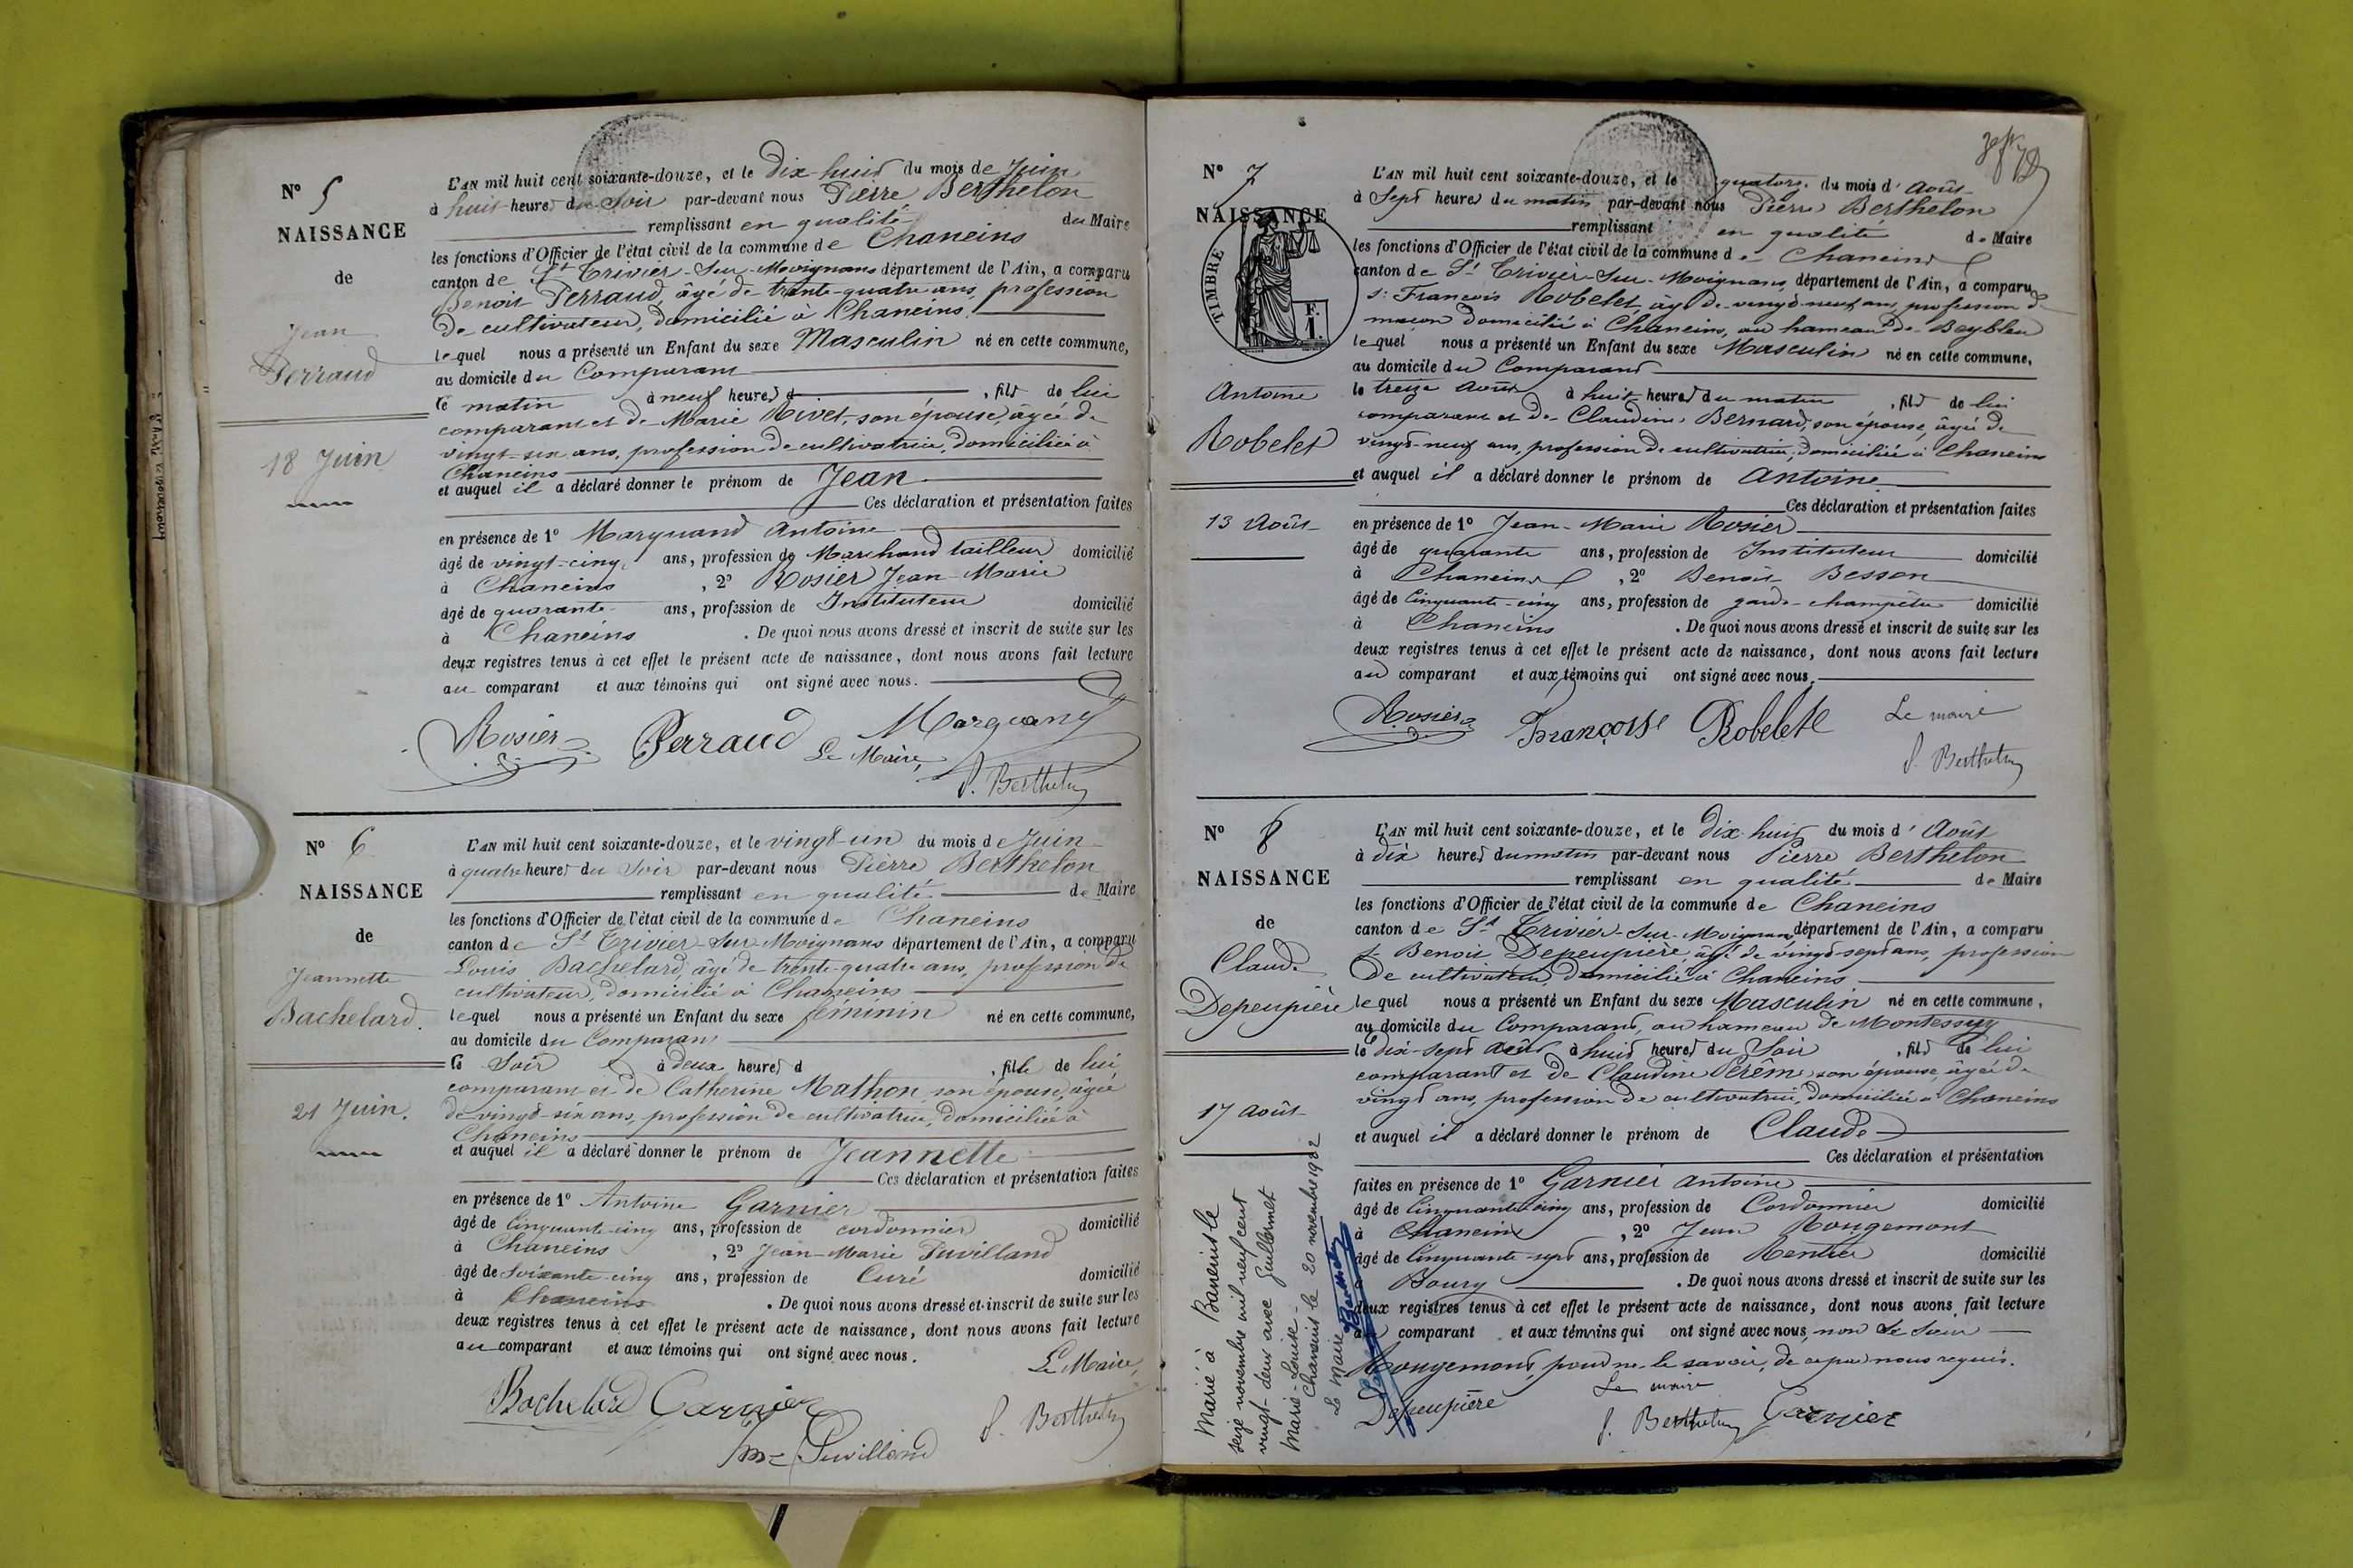 N° 5
NAISSANCE
de
Jean
Perraud
18 Juin
L'AN mil huit cent soixante-douze, et le Dix-huit du mois de Juin
à huit heures du Soir par-devant nous Pierre Berthelon
remplissant en qualité du Maire
les fonctions d'Officier de l'état civil de la commune de Chaneins
canton de St Trivier-Sur-Moignans département de l'Ain, a comparu
Benoit Perraud, âgé de trente-quatre ans, profession
de cultivateur, domicilié à Chaneins
lequel nous a présenté un Enfant du sexe Masculin né en cette commune,
au domicile du Comparant
le matin à neuf heures d , fils de lui
comparant et de Marie Rivet, son épouse, âgée de
vingt-six ans, profession de cultivatrice, domiciliée à
Chaneins
et auquel il a déclaré donner le prénom de Jean
Ces déclaration et présentation faites
en présence de 1° Marquand Antoine
âgé de vingt-cinq ans, profession de Marchand tailleur domicilié
à Chaneins , 2° Rosier Jean-Marie
âgé de quarante ans, profession de Instituteur domicilié
à Chaneins . De quoi nous avons dressé et inscrit de suite sur les
deux registres tenus à cet effet le présent acte de naissance, dont nous avons fait lecture
au comparant et aux témoins qui ont signé avec nous.
Rosier Perraud Marquand
Le Maire,
P. Berthelon
N° 6
NAISSANCE
de
Jeannette
Bachelard.
21 Juin.
L'AN mil huit cent soixante-douze, et le vingt-un du mois de Juin
à quatre heures du Soir par-devant nous Pierre Berthelon
remplissant en qualité de Maire
les fonctions d'Officier de l'état civil de la commune de Chaneins
canton de St Trivier-Sur-Moignans département de l'Ain, a comparu
Louis Bachelard, âgé de trente-quatre ans, profession de
cultivateur, domicilié à Chaneins
lequel nous a présenté un Enfant du sexe féminin né en cette commune,
au domicile du Comparant
le Soir à deux heures d , fille de lui
comparant et de Catherine Mathon son épouse, âgée
de vingt-six ans, profession de cultivatrice, domiciliée à
Chaneins
et auquel il a déclaré donner le prénom de Jeannette
Ces déclaration et présentation faites
en présence de 1° Antoine Garnier
âgé de Cinquante-cinq ans, profession de cordonnier domicilié
à Chaneins , 2° Jean-Marie Puvilland
âgé de Soixante-cinq ans, profession de Curé domicilié
à Chaneins . De quoi nous avons dressé et inscrit de suite sur les
deux registres tenus à cet effet le présent acte de naissance, dont nous avons fait lecture
au comparant et aux témoins qui ont signé avec nous.
Le Maire,
Bachelard Garnier
P. Berthelon
Puvilland
N° 7
NAISSANCE
TIMBRE
Antoine
Robelet
13 Août
L'AN mil huit cent soixante-douze, et le quatorze du mois d' Août
à Sept heures du matin par-devant nous Pierre Berthelon
remplissant en qualité de Maire
les fonctions d'Officier de l'état civil de la commune de Chaneins
canton de St Trivier-Sur-Moignans, département de l'Ain, a comparu
sr François Robelet, âgé de vingt-neuf ans, profession de
maçon domicilié à Chaneins, au hameau de Beybleu
lequel nous a présenté un Enfant du sexe Masculin né en cette commune,
au domicile du Comparant
le treize Août à huit heures du matin , fils de lui
comparant et de Claudine Bernard, son épouse, âgée de
vingt-neuf ans, profession de cultivatrice, domiciliée à Chaneins
et auquel il a déclaré donner le prénom de Antoine
Ces déclaration et présentation faites
en présence de 1° Jean-Marie Rosier
âgé de quarante ans, profession de Instituteur domicilié
à Chaneins , 2° Benoit Besson
âgé de Cinquante-cinq ans, profession de garde-champêtre domicilié
à Chaneins . De quoi nous avons dressé et inscrit de suite sur les
deux registres tenus à cet effet le présent acte de naissance, dont nous avons fait lecture
au comparant et aux témoins qui ont signé avec nous.
Rosier Françoise Robelete Le maire
P. Berthelon
N° 8
NAISSANCE
de
Claude
Depeupière
17 Août
Marié à Baneins le
seize novembre mil neuf cent
vingt-deux avec Guillermet
Marie-Louise.
Chaneins le 20 novembre 1922
Le Maire
L'AN mil huit cent soixante-douze, et le Dix-huit du mois d' Août
à dix heures du matin par-devant nous Pierre Berthelon
remplissant en qualité de Maire
les fonctions d'Officier de l'état civil de la commune de Chaneins
canton de St Trivier-Sur-Moignans département de l'Ain, a comparu
sr Benoit Depeupière, âgé de vingt-sept ans, profession
de cultivateur, domicilié à Chaneins
lequel nous a présenté un Enfant du sexe Masculin né en cette commune,
au domicile du Comparant, au hameau de Montessuy
le dix-sept août à huit heures du Soir , fils de lui
comparant et de Claudine Perêm son épouse, âgée de
vingt ans, profession de cultivatrice, domiciliée à Chaneins
et auquel il a déclaré donner le prénom de Claude
Ces déclaration et présentation
faites en présence de 1° Garnier Antoine
âgé de Cinquante-cinq ans, profession de Cordonnier domicilié
à Chaneins , 2° Jean Rougemont
âgé de Cinquante-sept ans, profession de Rentier domicilié
Bourg . De quoi nous avons dressé et inscrit de suite sur les
deux registres tenus à cet effet le présent acte de naissance, dont nous avons fait lecture
au comparant et aux témoins qui ont signé avec nous, non le sieur
Rougemont, pour ne le savoir, de ce par nous requis.
Depeupière Le maire
P. Berthelon Garnier